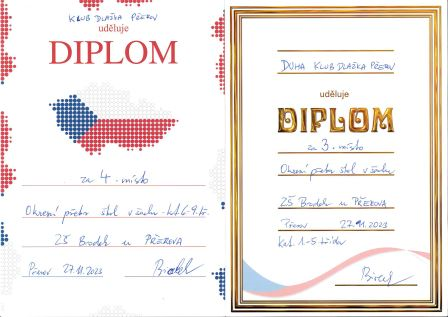 KLUB DLAŽKA PŘEROV
uděluje
DIPLOM
za 4. místo
Okresní přebor škol v šachu - kat. 6-9. tř.
ZŠ Brodek u PŘEROVA
Přerov 27.11.2023
DUHA KLUB DLAŽKA PŘEROV
uděluje
DIPLOM
za 3. místo
Okresní přebor škol v šachu
ZŠ Brodek u PŘEROVA
Přerov 27.11.2023
Kat. 1-5 tříd